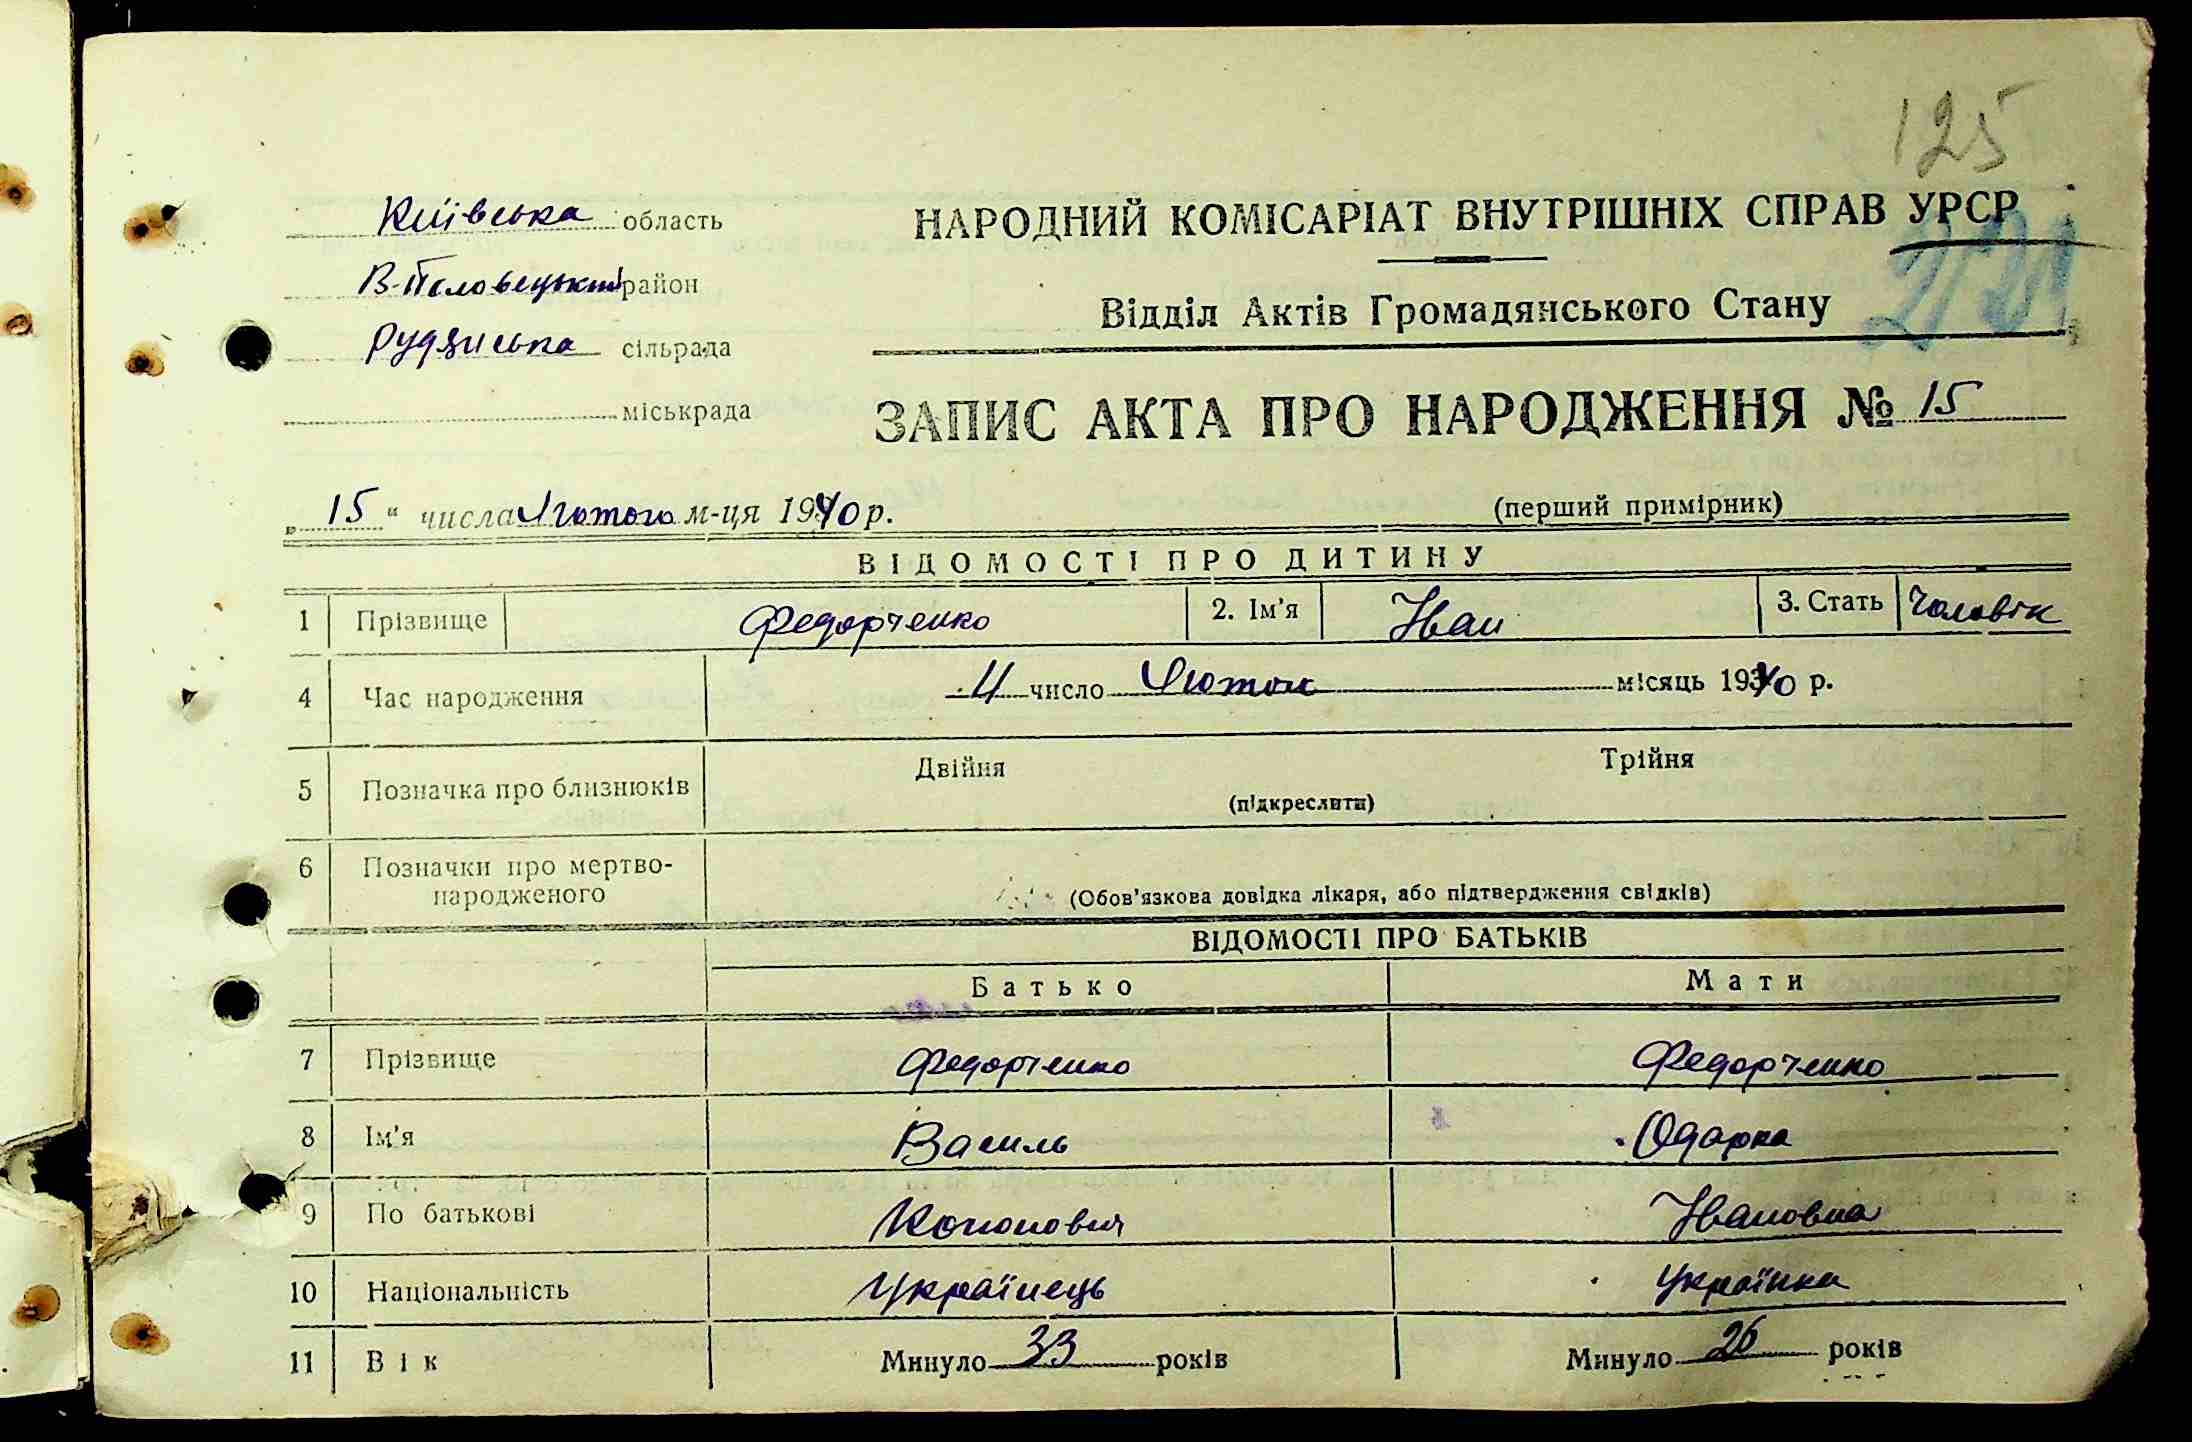 125
Київська область
НАРОДНИЙ КОМІСАРІАТ ВНУТРІШНІХ СПРАВ УРСР
В-Половецький район
Відділ Актів Громадянського Стану
сільрада
міськрада
ЗАПИС АКТА ПРО НАРОДЖЕННЯ № 15
„15“ числа Лютого м-ця 1940 р.
(перший примірник)
ВІДОМОСТІ ПРО ДИТИНУ
1 Прізвище Федорченко 2. Ім'я Іван 3. Стать Чоловік
4 Час народження число місяць 1940 р.
5 Позначка про близнюків Двійня Трійня
(підкреслити)
6 Позначки про мертво-
народженого
(Обов'язкова довідка лікаря, або підтвердження свідків)
ВІДОМОСТІ ПРО БАТЬКІВ
Батько Мати
7 Прізвище Федорченко Федорченко
8 Ім'я Василь Одарка
9 По батькові Кононович Івановна
10 Національність Українець Українка
11 Вік Минуло 33 років Минуло 26 років